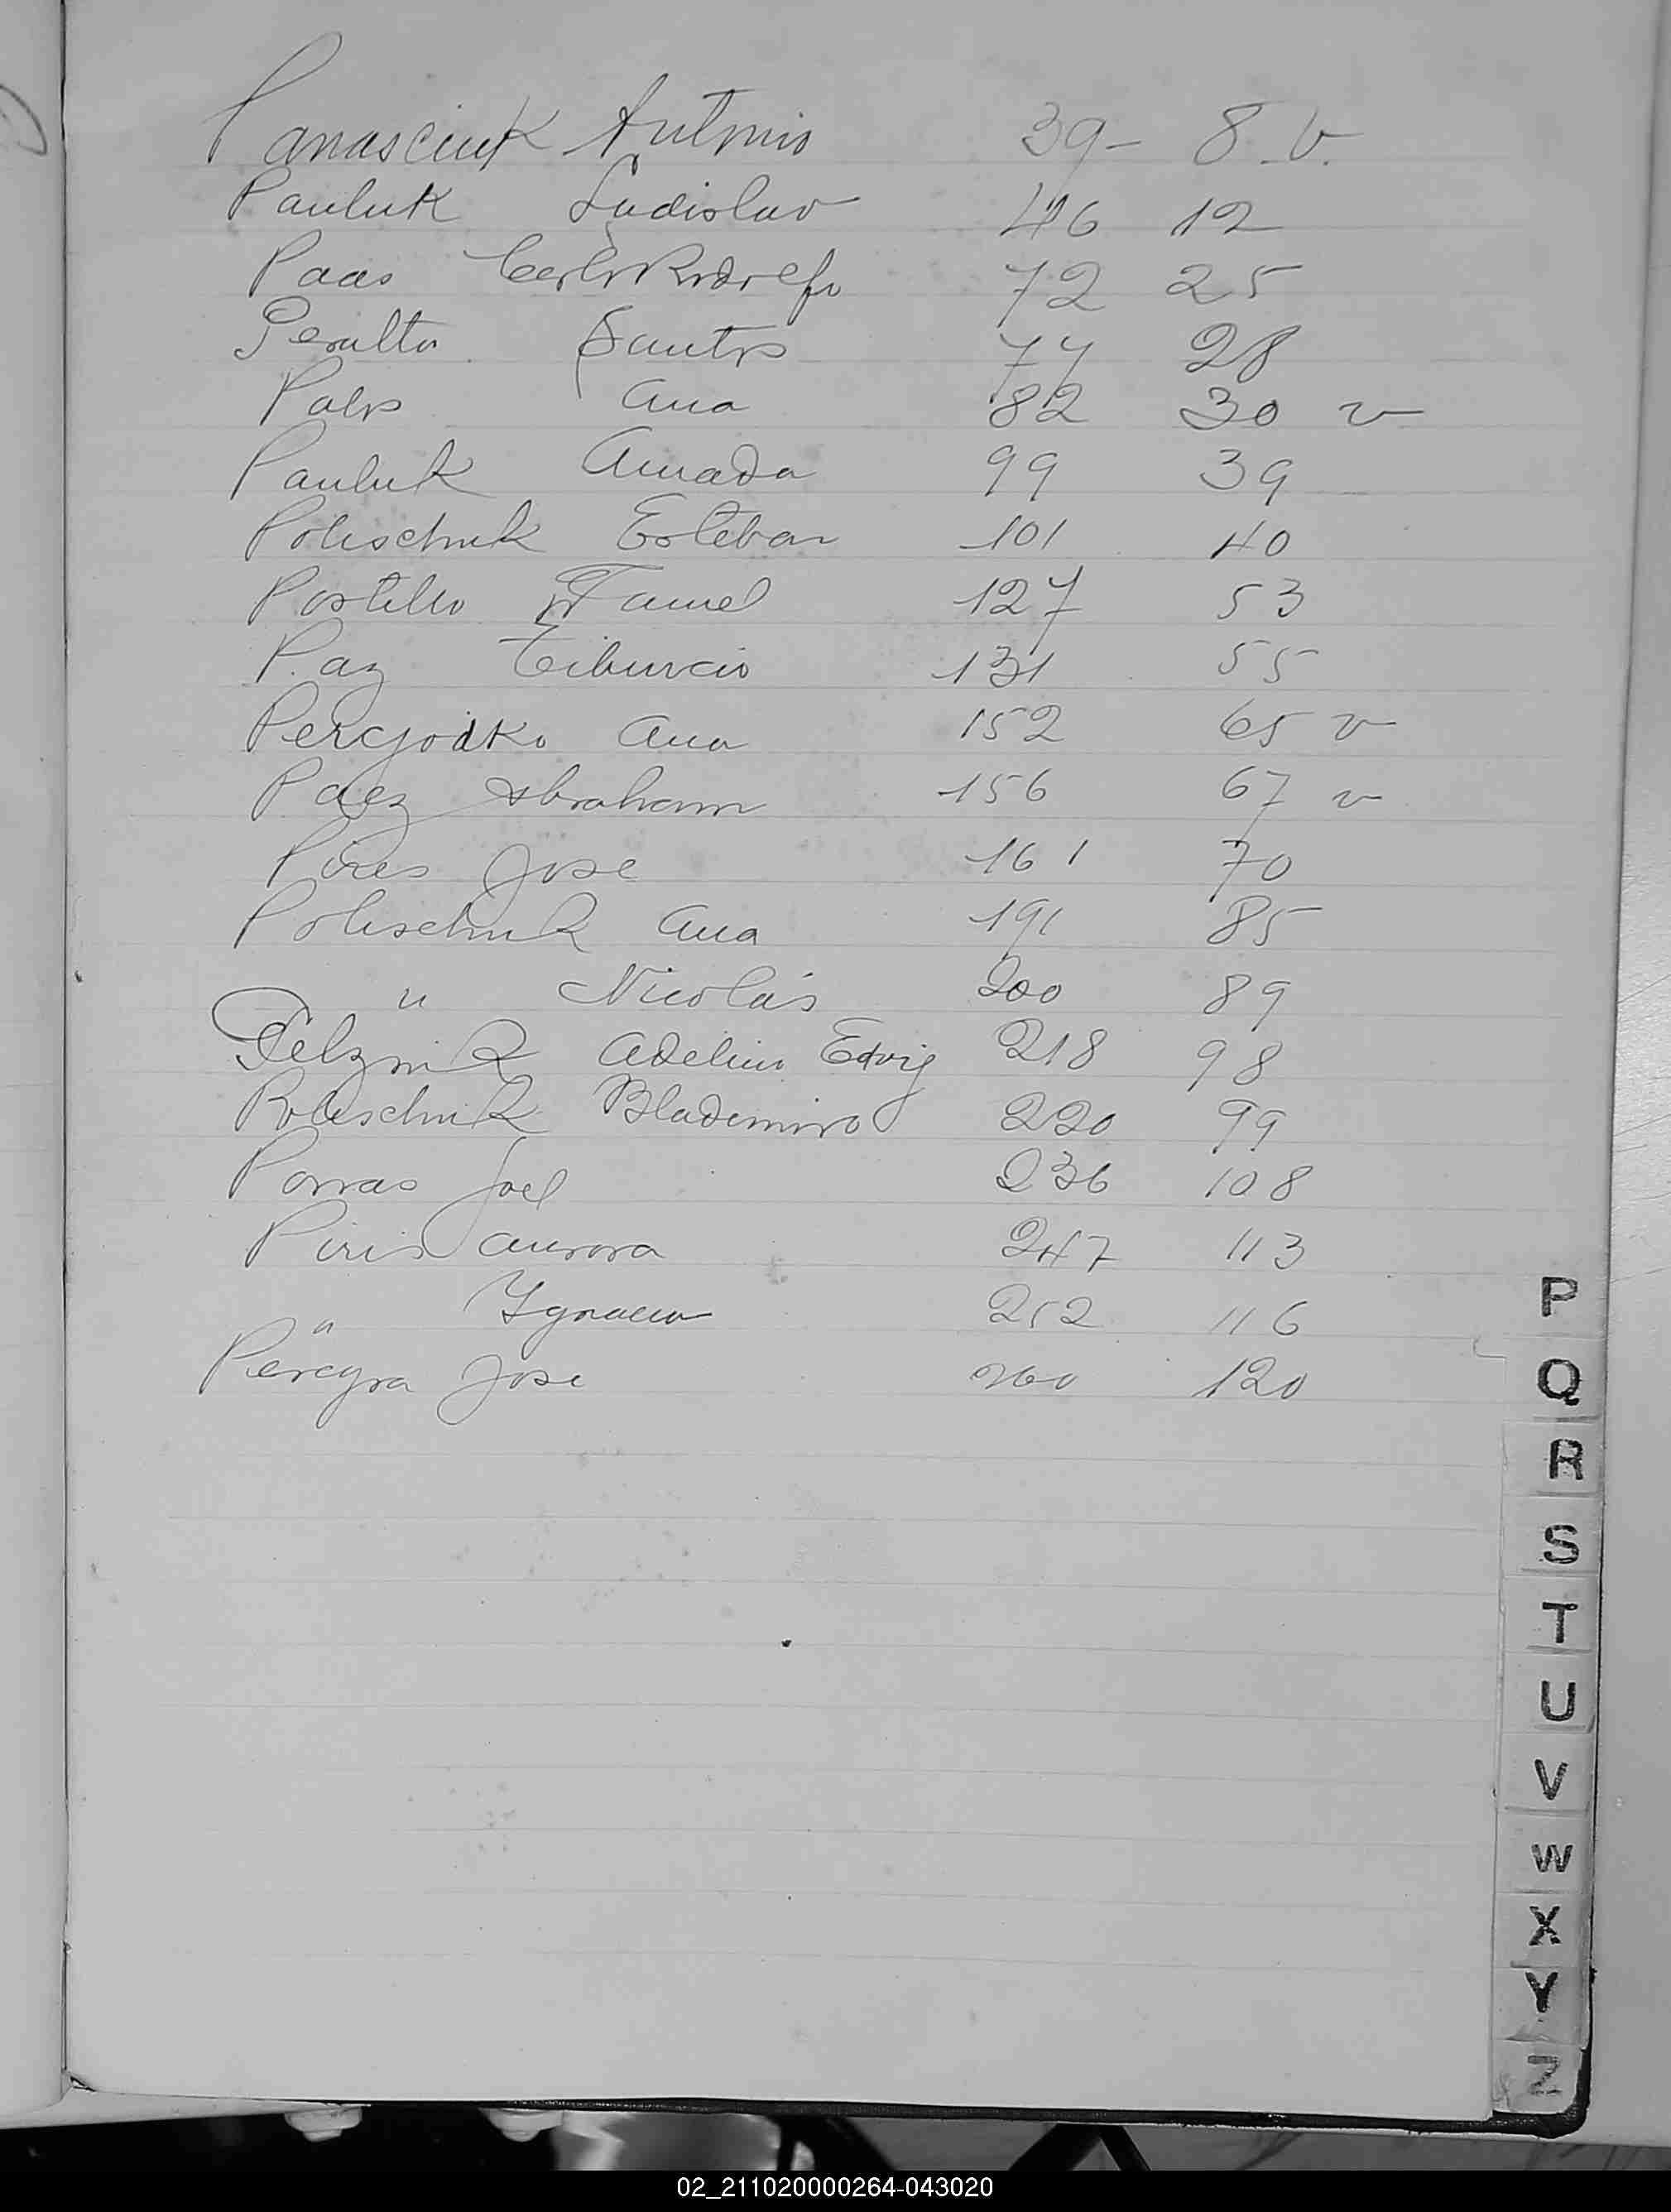 Panasciuk Antonio 39- 8 v.
Pauluk Ladislao 46 12
Paas Carlos Rodolfo 72 25
Peralta Santos 77 28
Palos Ana 82 30 v
Pauluk Amada 99 39
Polischuk Esteban 101 40
Postillo 127 53
Paz Tiburcio 131 55
Percjodko Ana 152 65 v
Paez Abraham 156 67 v
Pires Jose 161 70
Polischuk Ana 191 85
" Nicolás 200 89
Pelznik Adelino Edvig 218 98
Polischuk Blademiro 220 99
Porras Joel 236 108
Piris Aurora 247 113
" Ygnacio 252 116
Pereyra Jose 260 120
P
Q
R
S
T
U
V
W
X
Y
Z
02_211020000264-043020